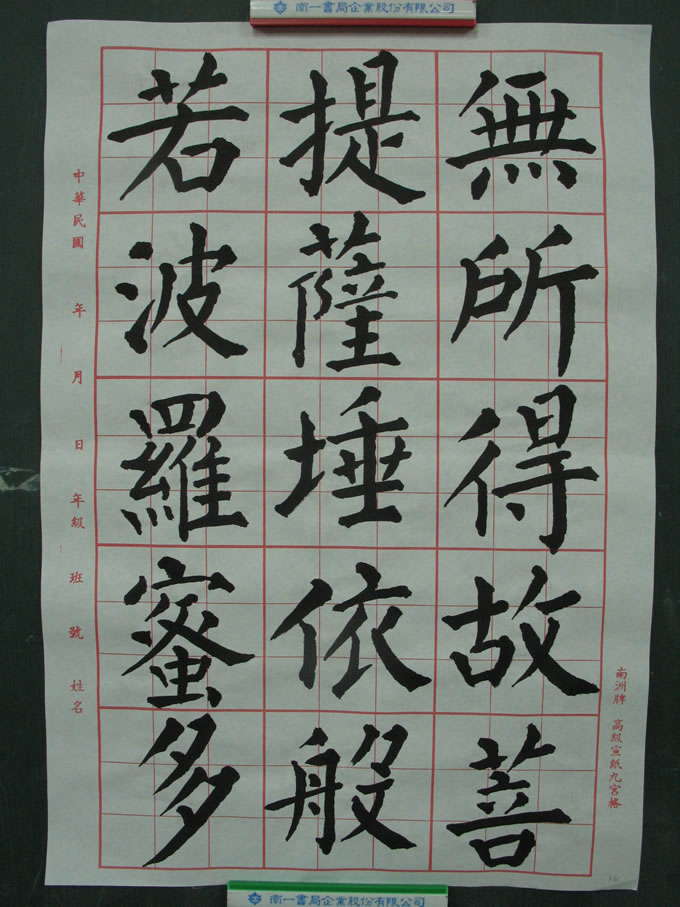 南一書局企業股份有限公司
無所得故菩
提薩埵依般
若波羅蜜多
中華民國 年 月 日 年級 班 號 姓名
南洲牌 高級宣紙九宮格
16
南一書局企業股份有限公司